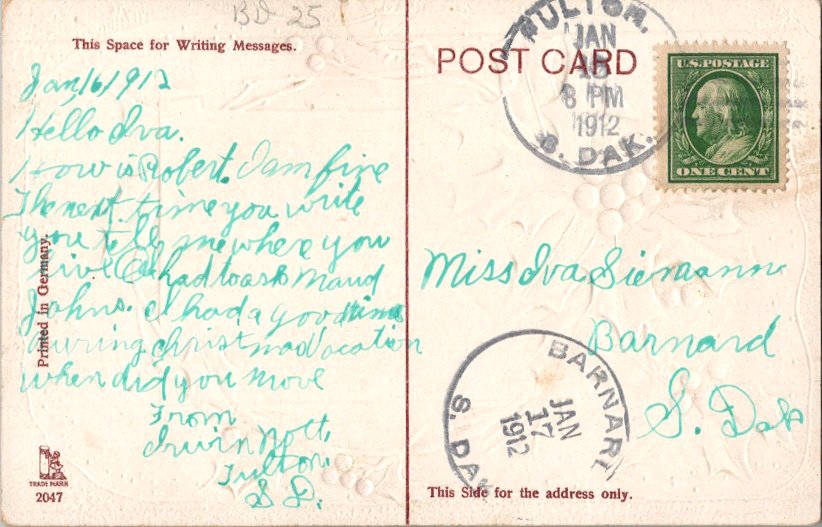 BD 25
This Space for Writing Messages.
Jan, 16, 1912
Hello Iva.
How is Robert. I am fine
The next time you write
you tell me where you
live I had to ask Maud
Johns. I had a good time
during christmas Vacation
when did you move
From
Irwin Nolt,
Fulton,
S D.
Printed in Germany.
TRADE MARK
2047
POST CARD
FULTON,
JAN
8 PM
1912
S. DAK.
U.S. POSTAGE
ONE CENT
Miss Iva Siemann
Barnard
S. Dak
BARNARD
JAN
17
1912
S. DAK
This Side for the address only.